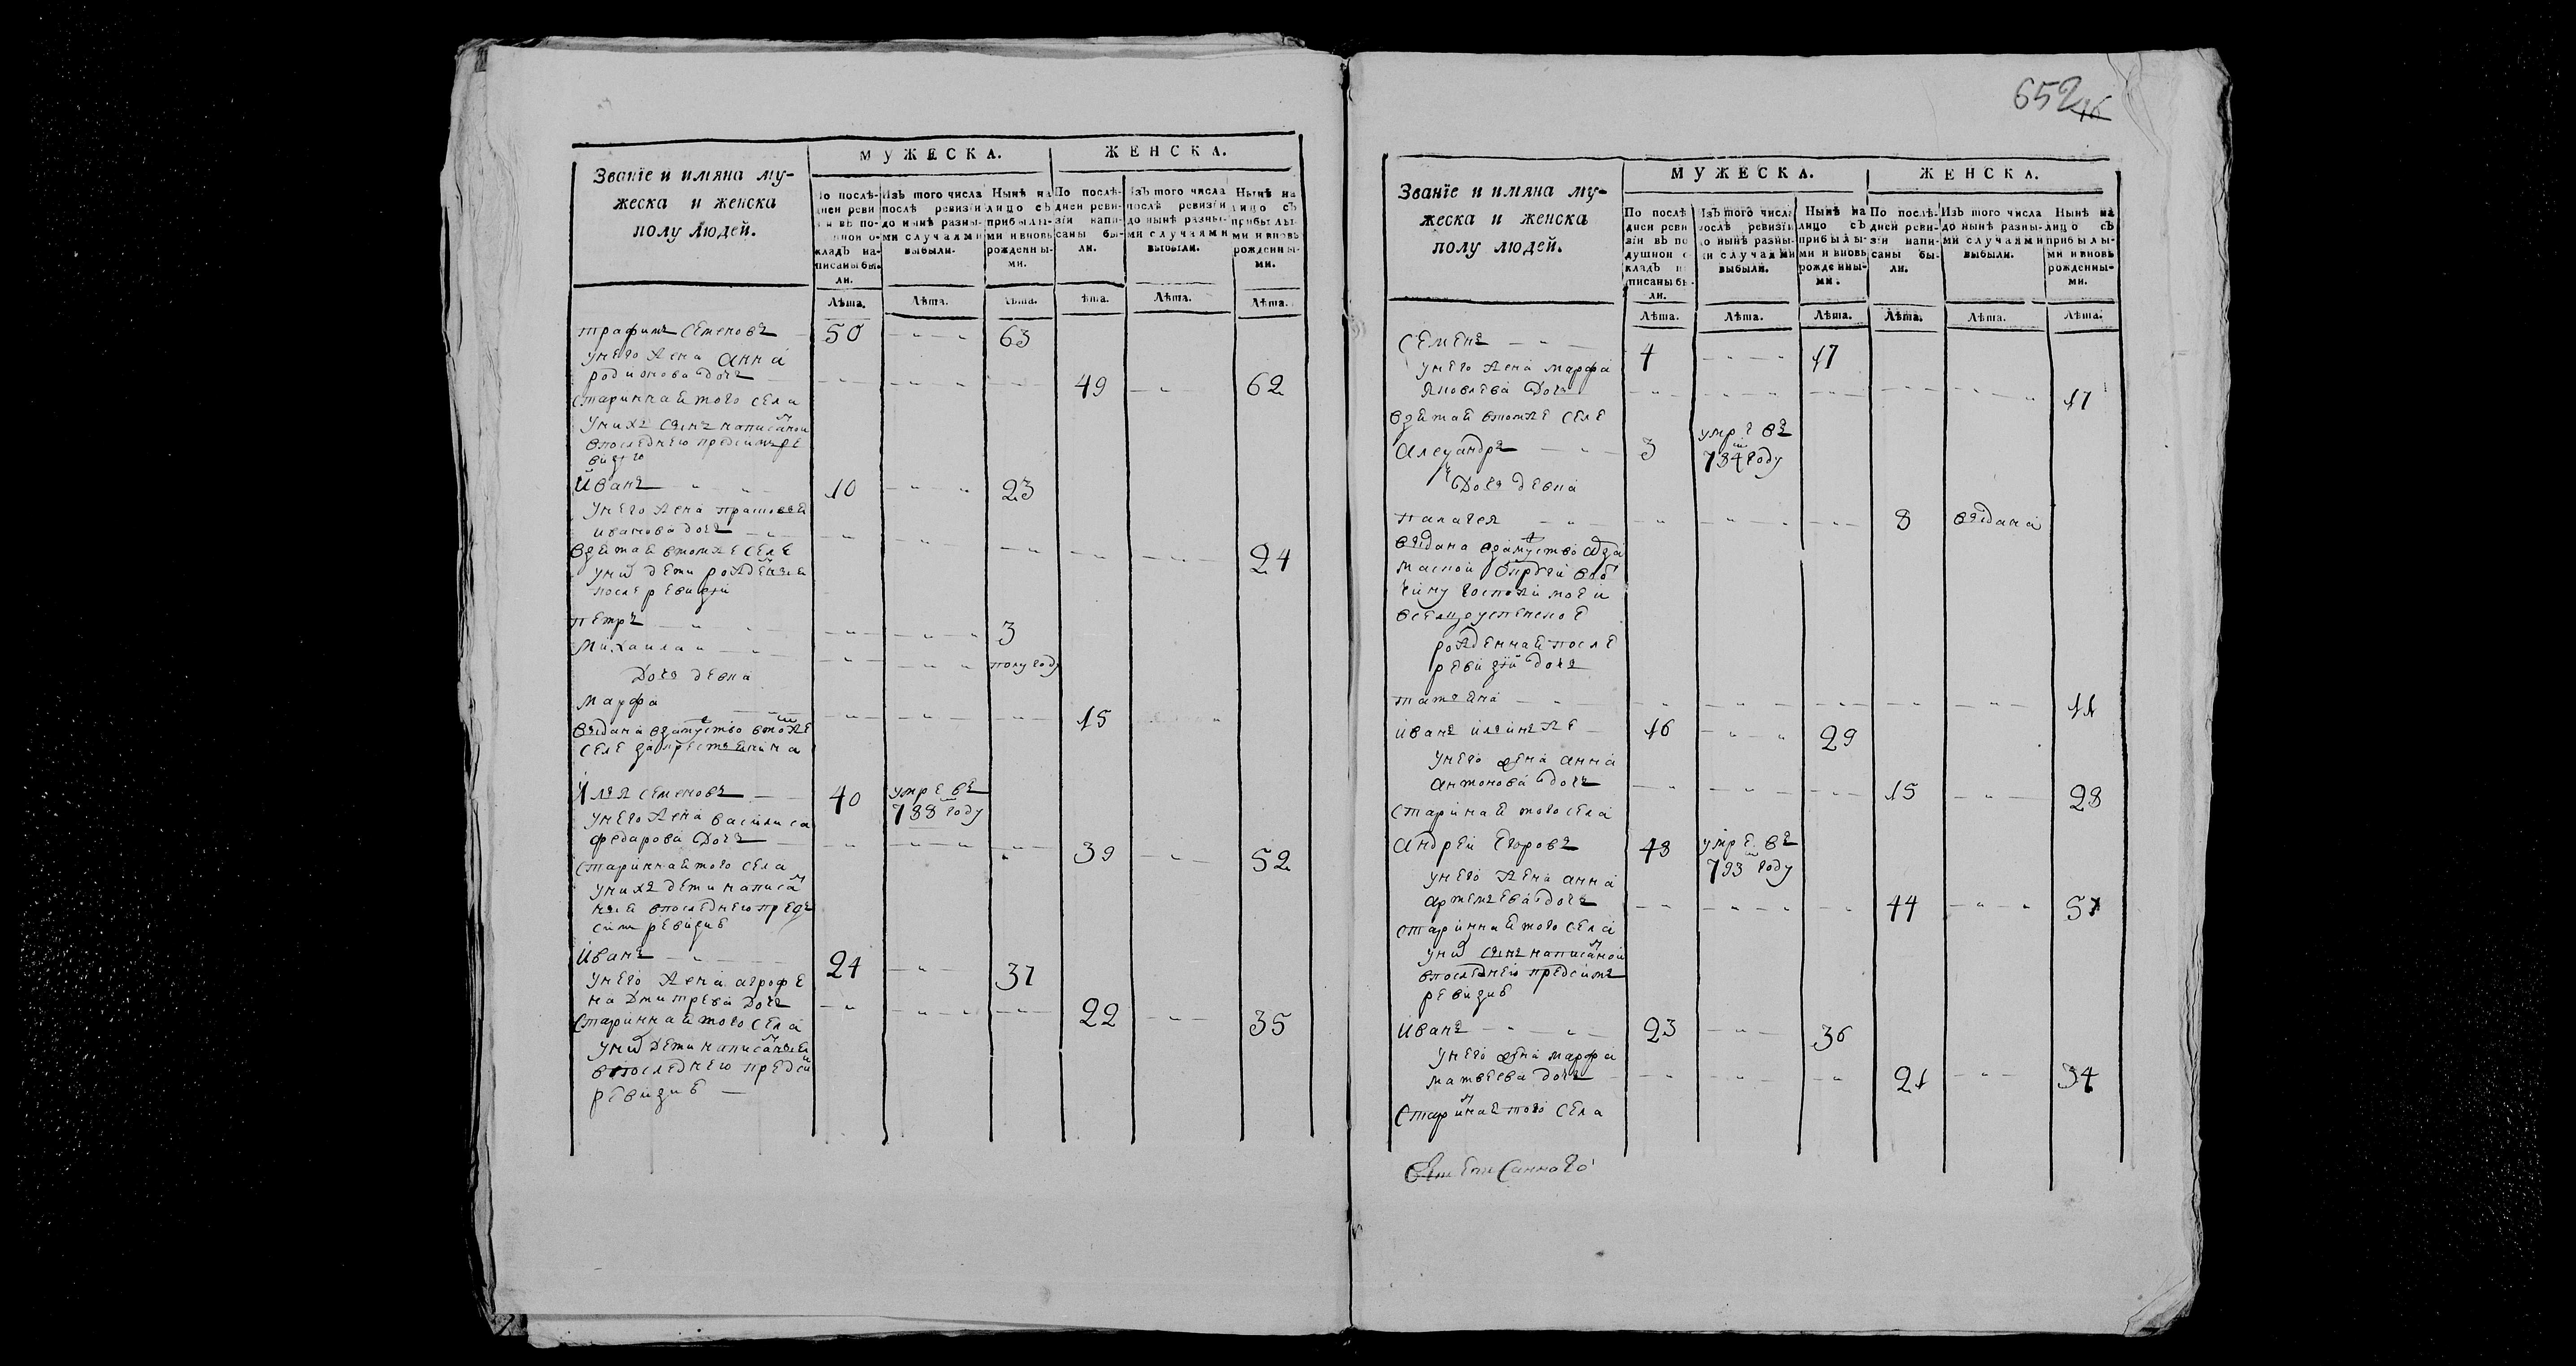 Званїе и имяна му-
жеска и женска
полу людей.
МУЖЕСКА.
ЖЕНСКА.
По послѣ-
дней реви-
зїи въ по-
душной о-
кладъ на-
писаны бы-
ли.
Изъ того числа
послѣ ревизїи
до нынѣ разны-
ми случаями
выбыли.
Нынѣ на
лицо съ
прибылы-
ми и вновь
рожденны-
ми.
По послѣ-
дней реви-
зїи напи-
саны бы-
ли.
Изъ того числа
послѣ ревизїи
до нынѣ разны-
ми случаями
выбыли.
Нынѣ на
лицо съ
прибылы-
ми и вновь
рожденны-
ми.
Лѣта. Лѣта. Лѣта. Лѣта. Лѣта. Лѣта.
трафимъ Семеновъ 50 63
унего жена анна
родионова дочь 49 62
старинная того села
унихъ сынъ написаной
впоследнею предсимъ ре
визiю
Иванъ 10 23
унего жена прасковья
иванова дочь 24
взятая втомже селе
у них дети рожденныя
после ревизiи
петръ 3
михаила полугоду
Дочь девка
Марфа 15
выдана взамужство втомже
селе за крестьянина
Илья семеновъ 40 умре въ
788 году
унего жена василиса
федарова дочь 39 52
старинная того села
унихъ дети написа
ныя впоследнею предъ
симъ ревизию
Иванъ 24 37
унего жена агрофе
на Дмитрева дочь 22 35
старинная того села
у них дети написаныя
впоследнею предси
ревизию
652
Званїе и имяна му-
жеска и женска
полу людей.
МУЖЕСКА.
ЖЕНСКА.
По послѣ
дней реви
зїи въ по
душной о
кладъ на
писаны бы-
ли.
Изъ того числа
послѣ ревизїи
до нынѣ разны-
ми случаями
выбыли.
Нынѣ на
лицо съ
прибылы-
ми и вновь
рожденны-
ми.
По послѣ-
дней реви-
зїи напи-
саны бы-
ли.
Изъ того числа
до нынѣ разны-
ми случаями
выбыли.
Нынѣ на
лицо съ
прибылы-
ми и вновь
рожденны-
ми.
Лѣта. Лѣта. Лѣта. Лѣта. Лѣта. Лѣта.
Семенъ 4 17
унего жена марфа
яковлева дочь 17
взятая втомже селе
Алесандръ 3 умре въ
784 году
Дочь девка
палагея 8 выдана
выдана взамужство
госпожи моей
рожденная после
ревизiи дочь
татьяна 11
иванъ ильинъ же 16 29
унего жена анна
антонова дочь 15 28
старинная того села
андрей егоровъ 48 умре въ
793 году
унего жена анна
артемьева дочь 44 57
старинная того села
у них сынъ написаной
впоследнею предсимъ
ревизию
Иванъ 23 36
унего жена марфа
матвеева дочь 21 34
старинная того села